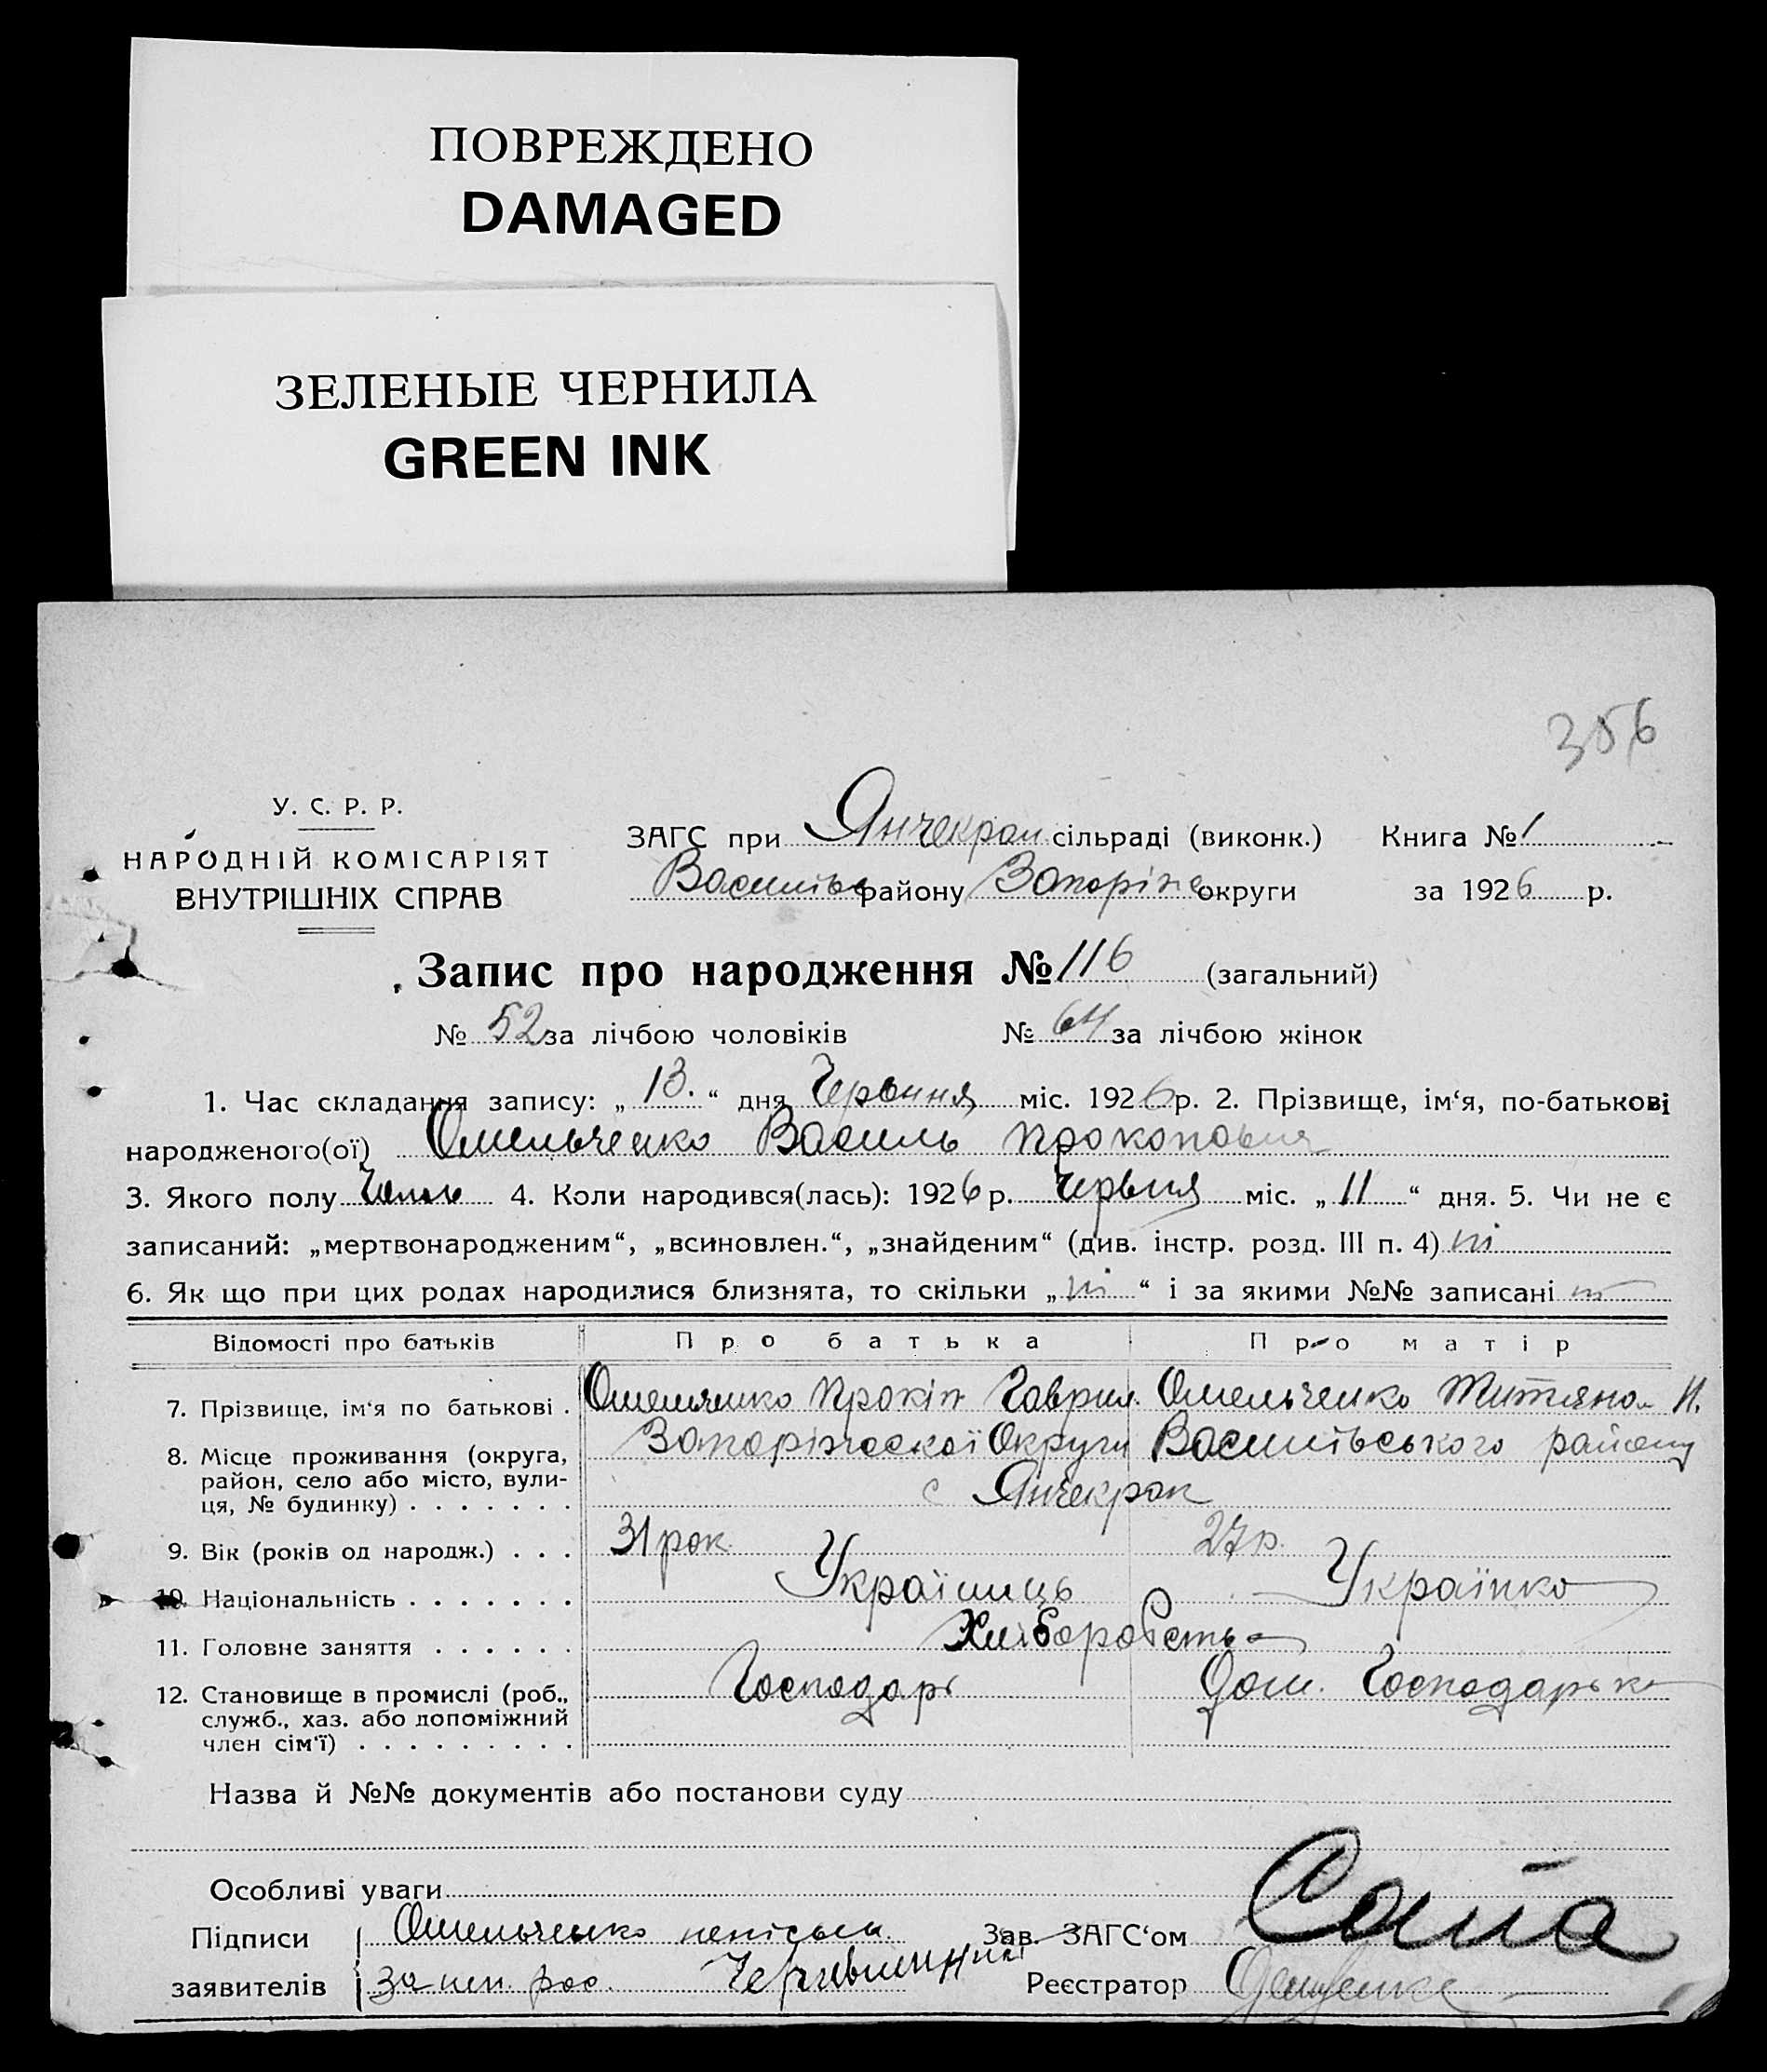 ПОВРЕЖДЕНО
DAMAGED
ЗЕЛЕНЫЕ ЧЕРНИЛА
GREEN INK
356
У. С. Р. Р.
НАРОДНІЙ КОМІСАРІЯТ
ВНУТРІШНІХ СПРАВ
ЗАГС при Янчекрак сільраді (виконк.) Книга № 1
Василівс району Запоріж округи за 1926 р.
Запис про народження № 116 (загальний)
№ 52 за лічбою чоловіків № 64 за лічбою жінок
1. Час складання запису: „13.“ дня Червння міс. 1926 р. 2. Прізвище, ім‘я, по-батькові
народженого(ої) Омельченко Василь Прокопович
3. Якого полу 4. Коли народився(лась): 1926 р. Червня міс. „11“ дня. 5. Чи не є
записаний: „мертвонародженим“, „всиновлен.“, „знайденим“ (див. інстр. розд. III п. 4) ні
6. Як що при цих родах народилися близнята, то скільки „ні“ і за якими №№ записані
Відомості про батьків Про батька Про матір
7. Прізвище, ім‘я по батькові . Омельченко Прокіп Гаврил. Омельченко Титяна Н.
8. Місце проживання (округа, Запоріжоскої Округи Василівського району
район, село або місто, вули-
ця, № будинку) . . . . . . . с Янчекрак
9. Вік (років од народж.) . . . 31 рок. 27 р.
10. Національність . . . . . . . Українць Українка
11. Головне заняття . . . . . . Хліборобство
12. Становище в промислі (роб., Господарь Дом. Господарька
служб., хаз. або допоміжний
член сім‘ї) . . . . . . . . .
Назва й №№ документів або постанови суду
Особливі уваги
Підписи Омельченко Зав. ЗАГС‘ом
заявителів Реєстратор